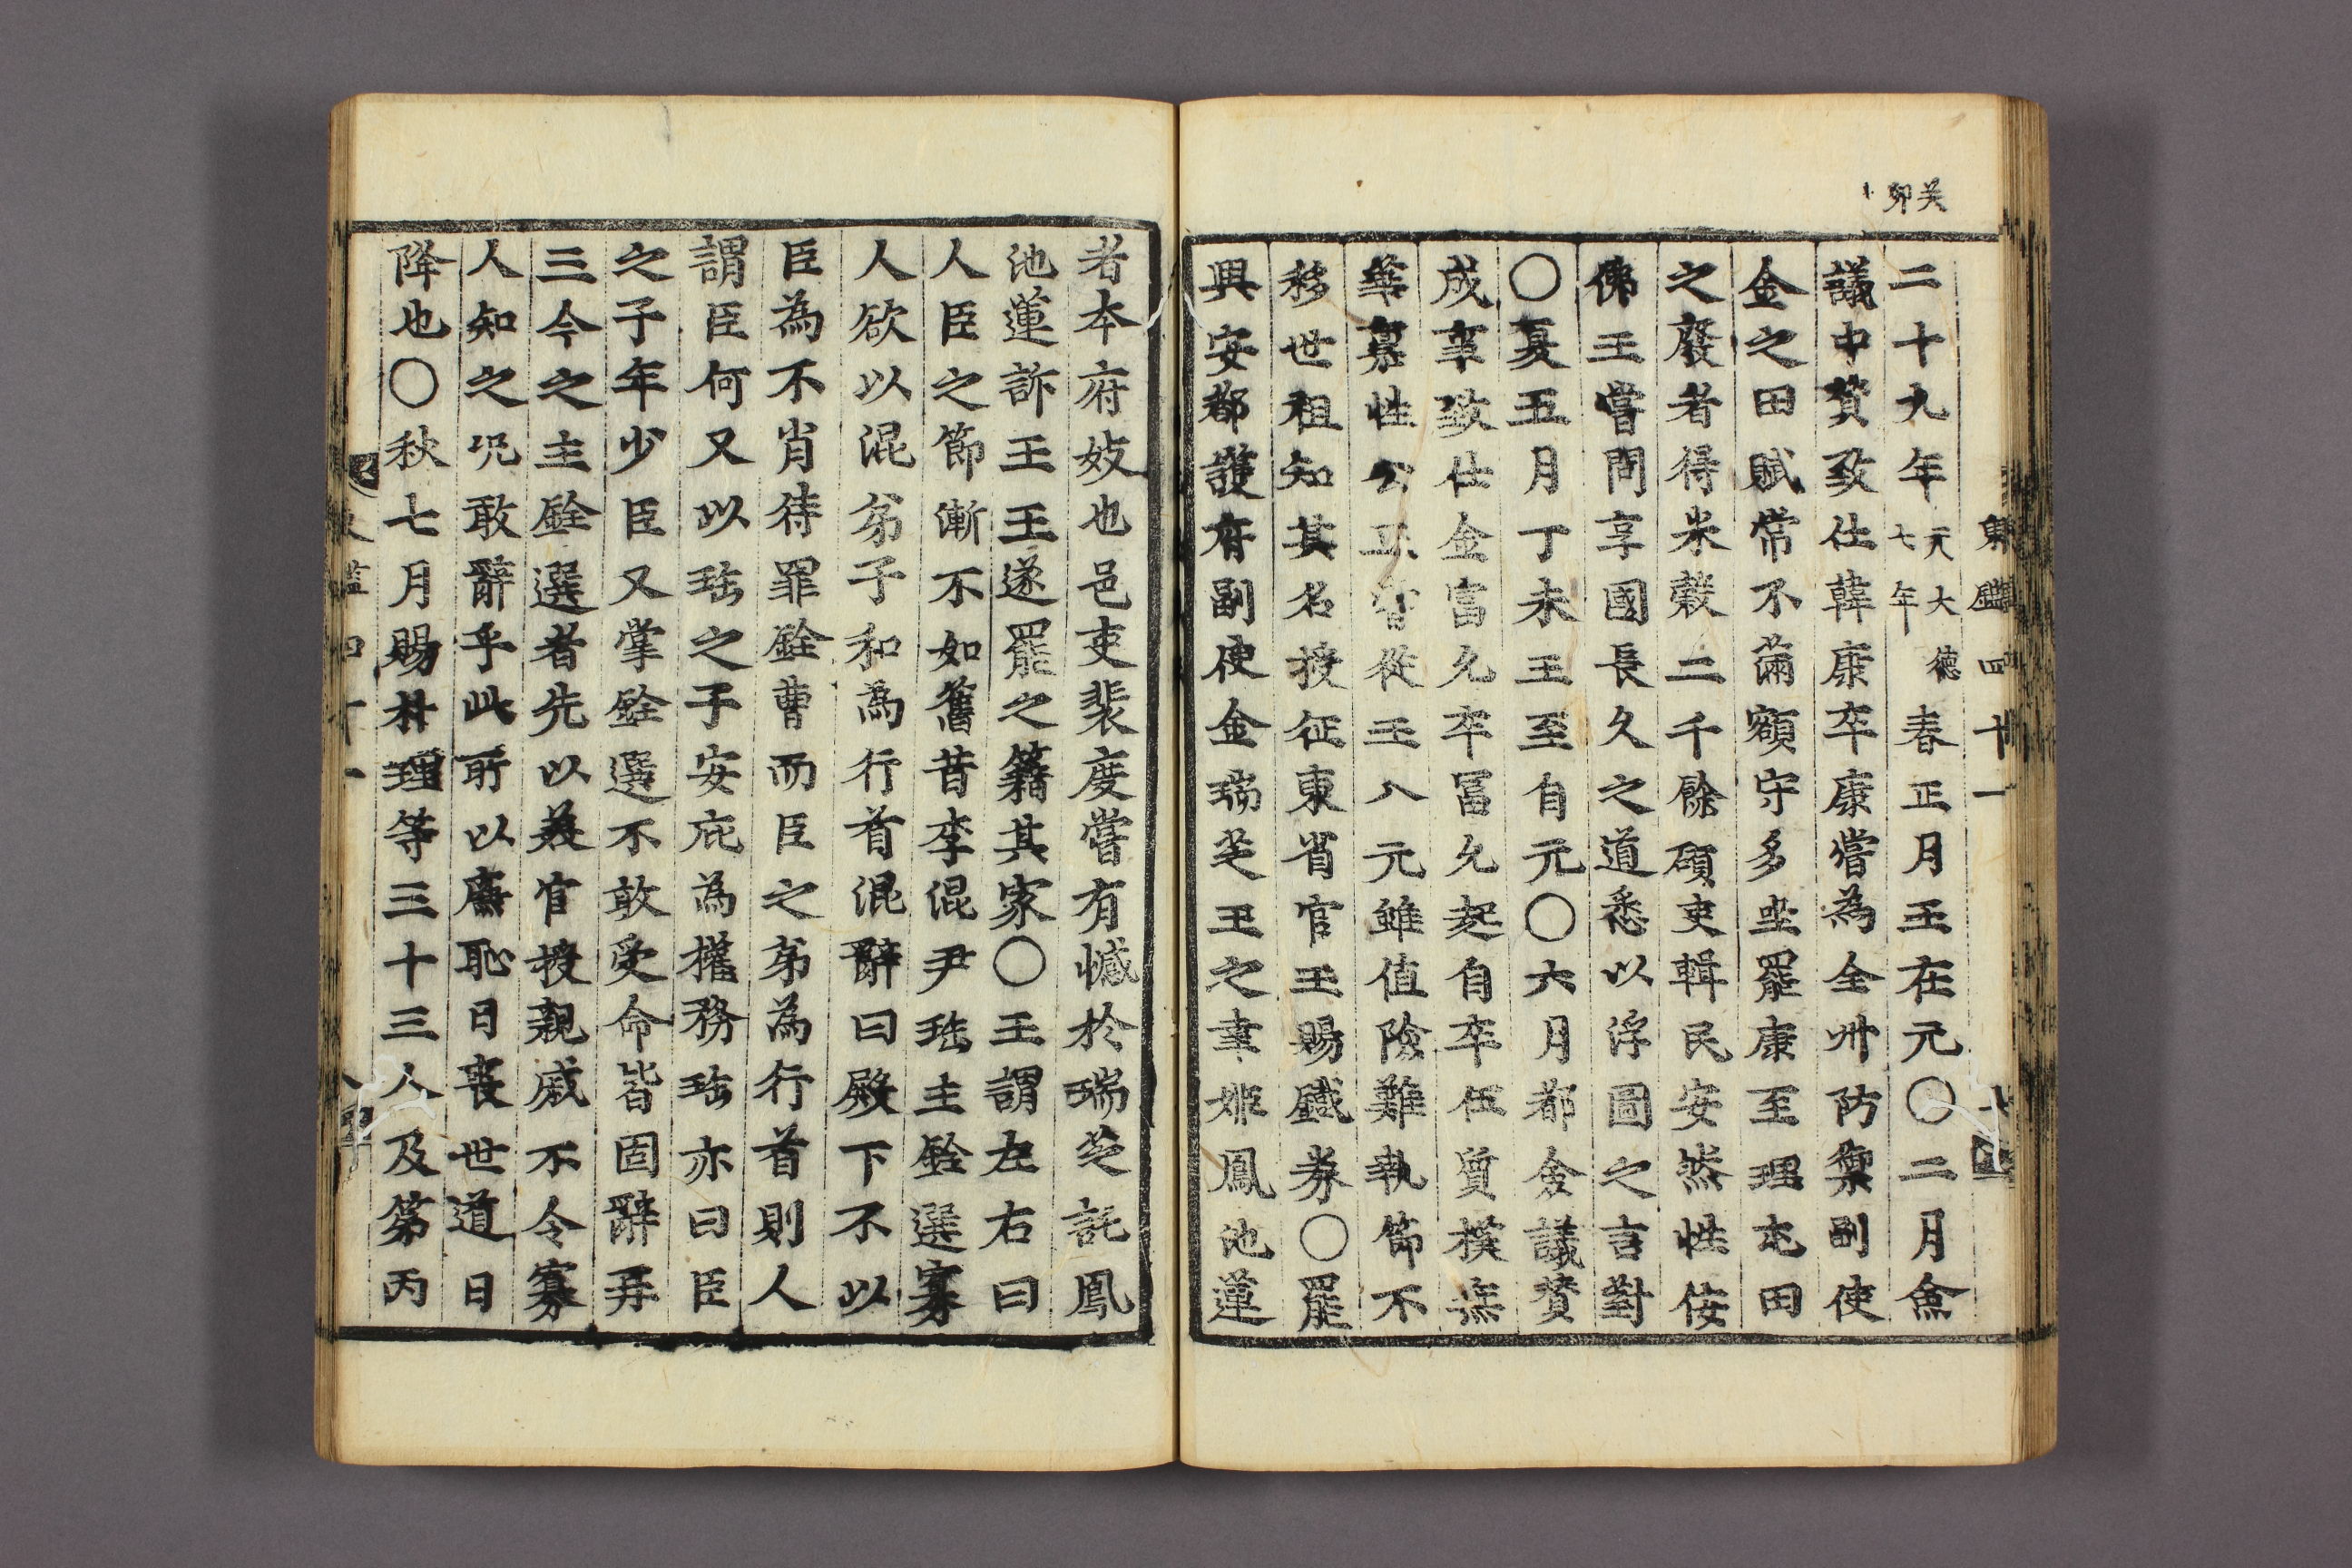 癸
卯
東鑑四十一
二十九年元大德七年春正月王在元○二月僉
議中贊致仕韓康卒康嘗為全州防禦副使
金之田賦常不滿額守多坐罷康至理屯田
之廢者得米穀二千餘碩吏輯民安然性佞
佛王嘗問享國長久之道悉以浮圖之言對
○夏五月丁未王至自元○六月都僉議贊
成事致仕金富允卒冨允起自卒伍質樸無
華嘉性公正嘗從王入元雖值險難執節不
移世祖知其名授征東省官王賜鐵券○罷
興安都護府副使金瑞芝王之幸姬鳳池蓮
者本府妓也邑吏裴度嘗有憾於瑞芝託鳳
池蓮訴王王遂罷之籍其家○王謂左右曰
人臣之節漸不如舊昔李混尹珤主銓選寡
人欲以混弟子和為行首混辭曰殿下不以
臣為不肖待罪銓曹而臣之弟為行首則人
謂臣何又以珤之子安庇為權務珤亦曰臣
之子年少臣又掌銓選不敢受命皆固辭再
三今之主銓選者先以美官授親戚不令寡
人知之况敢辭乎此所以廉恥日喪世道日
降也○秋七月賜朴理等三十三人及第丙